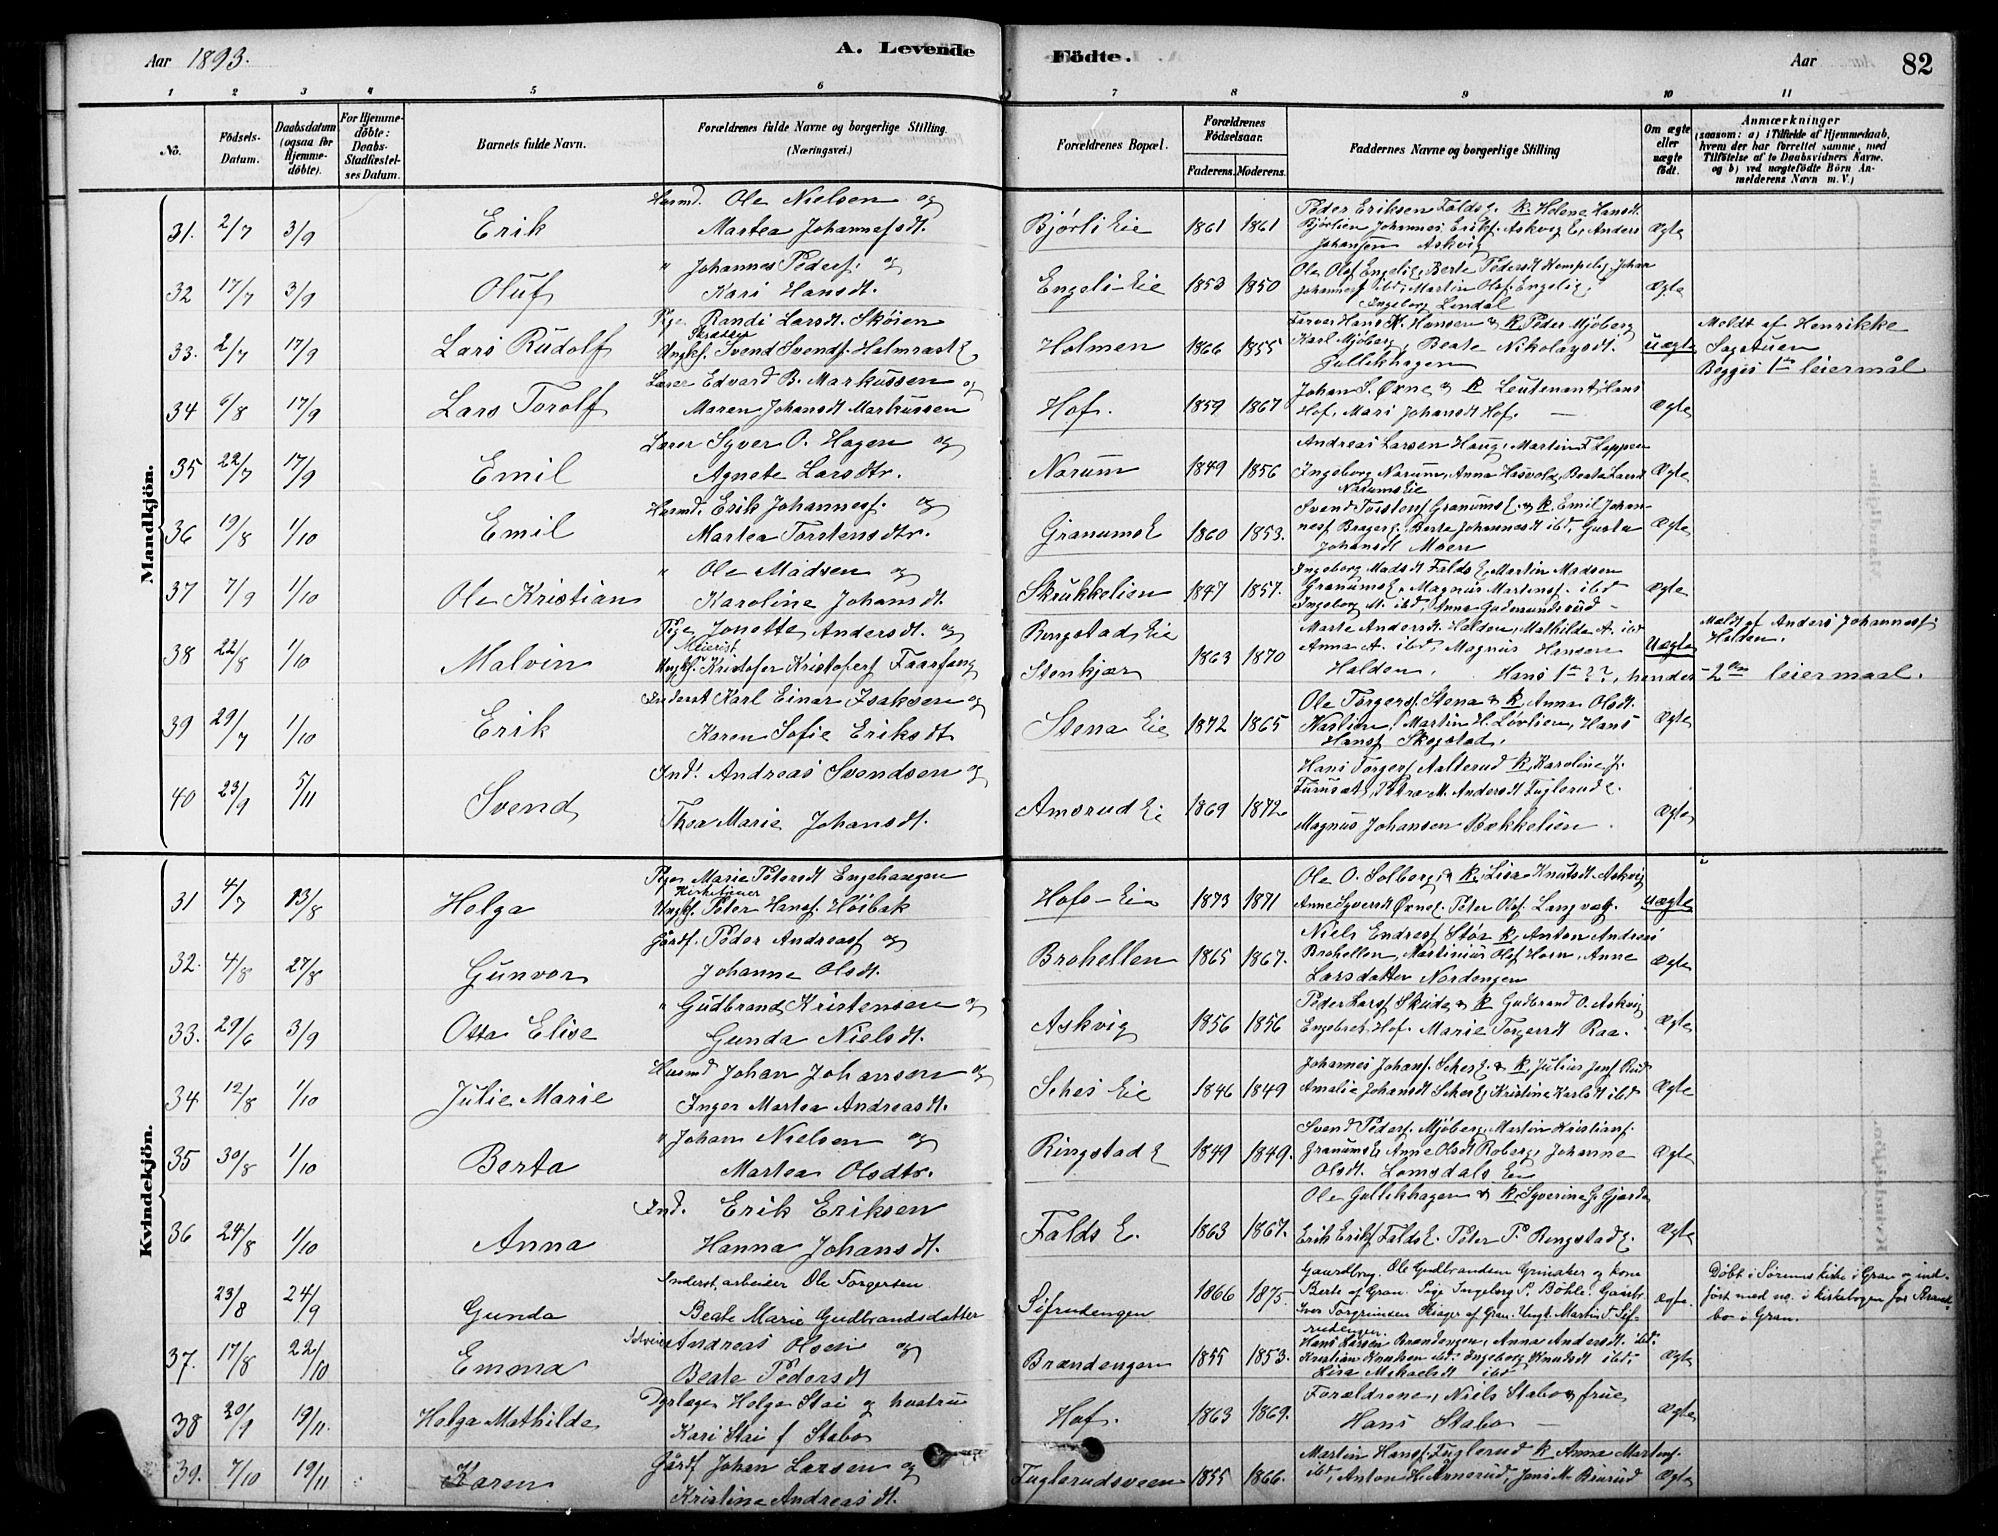 Aar 1893.
A. Levende
Födte.
Aar
82
1 2 3 4 5 6 7 8 9 10 11
No.
Födsels-
Datum.
Daabsdatum
(ogsaa for
Hjemme-
döbte).
For Hjemme-
döbte:
Daabs-
Stadfæstel-
ses Datum.
Barnets fulde Navn.
Forældrenes fulde Navne og borgerlige Stilling.
(Næringsvei.)
Forældrenes Bopæl.
Forældrenes
Födselsaar.
Faderens. Moderens.
Faddernes Navne og borgerlige Stilling
Om ægte
eller
uægte
födt.
Anmærkninger
(saasom: a) i Tilfælde af Hjemmedaab,
hvem der har forrettet samme, med
Tilföielse af to Daabsvidners Navne.
og b) ved uægtefödte Börn An-
melderens Navn m. V.)
Mandkjön.
31. 2/7 3/9 Erik
Husmd. Ole Nielsen og
Martea Johannesdt.
Bjørli Eie 1861 1861
Peder Eriksen Falds E. K. Helene Hansdt.
Bjørlien Johannes Erikf. Askvig E. Anders
Johansen Askvig
Ægte
32 17/7 3/9 Oluf
" Johannes Pedersf. og
Kari Hansdt.
Engeli Eie 1853 1850
Ole Olsf Engelie, Berte Pedersdt
Johannesf ibd, Martin Olsf. Engelie,
Ingeborg Lindal
Ægte
33. 2/7 17/9 Lars Rudolf
Pige Randi Larsdt. Skøien
Ungkf. Svend Svendsf. Holmrast E.
Holmen 1866 1855
Farver Hans H. Hansen & K. Peder Mjøberg
Karl Mjøberg, Beate Nikolaysdt.
Gullikhagen
Uægte
Meldt af Henrikke
Sagstuen
Begges 1ste leiermål
34 6/8 17/9 Lars Torolf
Lærer Edvard B. Markussen og
Maren Johansdt Markussen
Hof. 1859 1867
Johan S. Øxne & K. Leutenant Hans
Hof, Mari Johansdt Hof. —
Ægte
35 22/7 17/9 Emil
Lærer Syver O. Hagen og
Agnete Larsdtr.
Narum 1849 1856
Andreas Larsen Haug, Martin F. Lappen
Ingeborg Narum, Anna Hasvold, Beate Larsd
Narums Eie
Ægte
36 19/8 1/10 Emil
Husmd. Erik Johannesf. og
Martea Torstensdtr.
Granums E 1860 1853.
Svend Torstensf Granums E. & K. Emil Johan-
nesf Brager E, Berte Johannesdt ibd, Gusta
Johansdt Moen
Ægte
37 7/9 1/10 Ole Kristian
" Ole Madsen og
Karoline Johansdt.
Skrukkelien 1847 1857.
Ingeborg Madsdt Falds E, Martin Madsen
Granums E. Magnus Martensf. ibd
Ingeborg M. ibd, Anna Gudmundsrud -
Ægte
38 22/8 1/10 Malvin
Pige Jonette Andersdt. og
Meierist
Ungkf. Kristofer Kristofersf Faarfang
Ringstad Eie
Stenkjær 1863 1870
Marte Andersdt. Halden, Mathilde A. ibd
Anna A. ibd, Magnus Hansen
Halden. Hans 1ste ??, hendes
Uægte
Meldt af Anders Johannesf.
Halden.
- 2den leiermaal.
39 29/7 1/10 Erik
Inderst Karl Einar Isaksen og
Karen Sofie Eriksdt
Stena Eie 1872 1865
Ole Torgersf Stena & K. Anna Olsdt.
Narlien, Martin H. Løvlien, Hans
Hansf Skogstad,
Ægte
40 23/9 5/11 Svend
Ind. Andreas Svendsen og
Thea Marie Johansdt.
Amsrud Ei 1869 1872
Hans Torgersf Aalterud K. Karoline J.
Furusat, Petra M. Andersdt Fuglerud E.
Magnus Johansen Bækkelien.
Ægte
Kvindekjön.
31 4/7 13/8 Helga
Pige Marie Petersdt Engehaugen
Ungkf. Peter Hansf. Høibak
Hofs-Eie 1873 1871
Ole O. Solberg & K. Lisa Knutsdt Askvig
Anne Syversdt Øxne E. Peter Olsf. Langvæg.
Uægte
32. 4/8 27/8 Gunvor
Gårdf. Peder Andreasf og
Johanne Olsdt.
Brohellen 1865 1867.
Niels Endresf Stør K. Anton Andreas
Brohellen, Martinius Olsf Horn, Anne
Larsdatter Nordengen
Ægte
33. 29/6 3/9 Otta Elise
" Gudbrand Kristensen og
Gunda Nielsdt.
Askvig 1856 1856
Peder Larsf Skute & K. Gudbrand O. Askvig
Engebret Hof. Marie Torgersdt Raa.
Ægte
34 12/8 1/10 Julie Marie
Husmd Johan Johansen og
Inger Martea Andreasdt.
Sches Eie 1846 1849
Johannes Johansf. Sches E. & K. Julius Jensf Rud
Amalie Johansdt Sches E, Kristine Karlsdt ibd
Ægte
35 30/8 1/10 Berta
" Johan Nielsen og
Martea Olsdtr.
Ringstad E 1849 1849.
Svend Pedersf. Mjøberg, Martin Kristiansf.
Granums E Anne Olsdt Roberg, Johanne
Olsdt. Lomsdals Eie
Ægte
36 24/8 1/10 Anna
Ind. Erik Eriksen
Hanna Johansdt.
Falds E. 1863 1867.
Ole Gullikhagen & K. Syverine G. Gjørde
Erik Eriksf Falds E. Peter P. Ringstad E.
Ægte
23/8 24/9 Gunda
Inderst, arbeider Ole Torgersen
Beate Marie Gudbrandsdatter
Sifrudengen 1866 1875
Gaardbrg. Ole Gudbrandsen Grinaker og kone
Berte af Gran. Pige Ingeborg P. Bøhle. Gaardbr.
Iver Torgrimsen Hager af Gran. Ungk. Martin T. Sif-
rudengen.
Ægte.
Døbt i Sørums kirke i Gran og ind-
ført med no. i kirkebogen for Brand-
bo i Gran.
37. 17/8 22/10 Emma
Andreas Olsen og
Beate Pedersdt
Brændengen 1855 1853.
Hans Larsen Brændengen, Anna Andersdt ibd.
Kristian Knudsen ibd, Ingeborg Knudsdt ibd,
Lisa Mikaelsdt ibd
Ægte
38 20/9 19/11. Helga Mathilde
Dyrlæge Helge Stai og hustru
Kari Stai f Stabo
Hof. 1863 1869.
Forældrene, Niels Stabo & frue,
Hans Stabo —
Ægte
39. 7/10 19/11 Karen
Gårdf Johan Larsen og
Kristine Andreasdt.
Fuglerudsveen 1855 1866.
Martin Hansf. Fuglerud K. Anna Martensf.
ibd, Anton H. Amsrud, Jens M. Binrud
Ægte